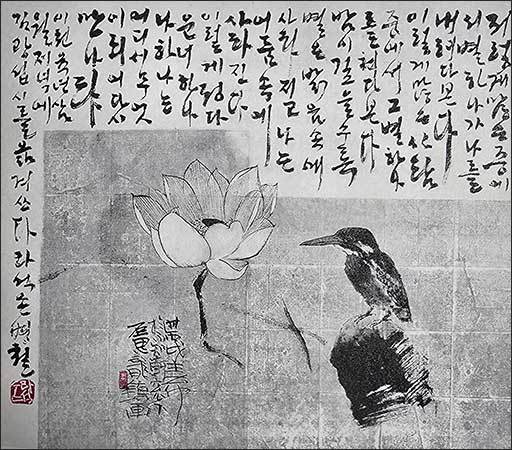 저렇게 많은 중에
서 별 하나가 나를
내려다본다
이렇게 많은 사람
중에서 그 별 하나
를 쳐다본다
밤이 깊을수록
별은 밝음 속에
사라지고 나는
어둠 속에
사라진다
이렇게 정다
운 너 하나
나 하나는
어디서 무엇
이 되어 다시
만나랴
이천육년 삼
월 저녁에
김광섭 시를 옮겨 쓰다 라석 손